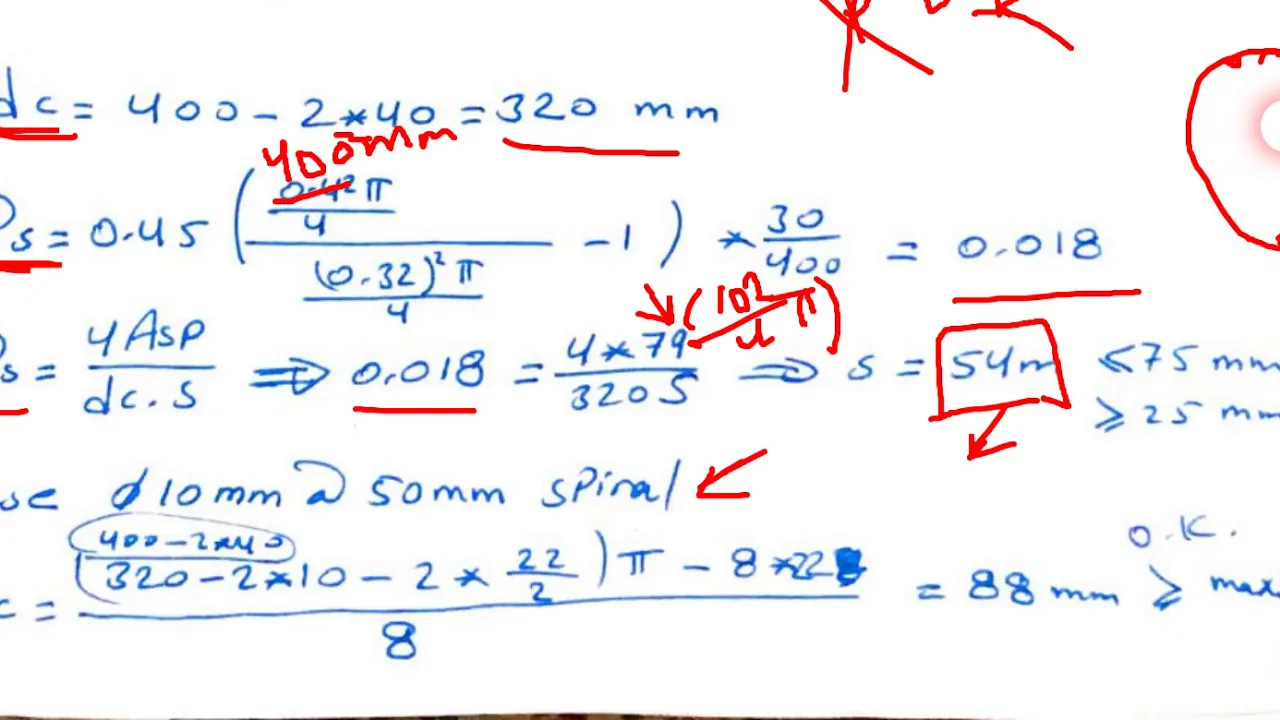 dc = 400 - 2*40 = 320 mm
400 mm
Ps = 0.45 ( (0.4²π / 4) / ((0.32)²π / 4) - 1 ) * 30/400 = 0.018
(10²/4 π)
s = 4Asp / dc.S ⇒ 0.018 = 4*79 / 320S ⇒ s = 54m ≤75 mm
≥ 25 mm
use ϕ10mm @ 50mm spiral
400-2*40
O.K.
c = (320-2*10-2*22/2)π - 8*22 / 8 = 88 mm ≥ max